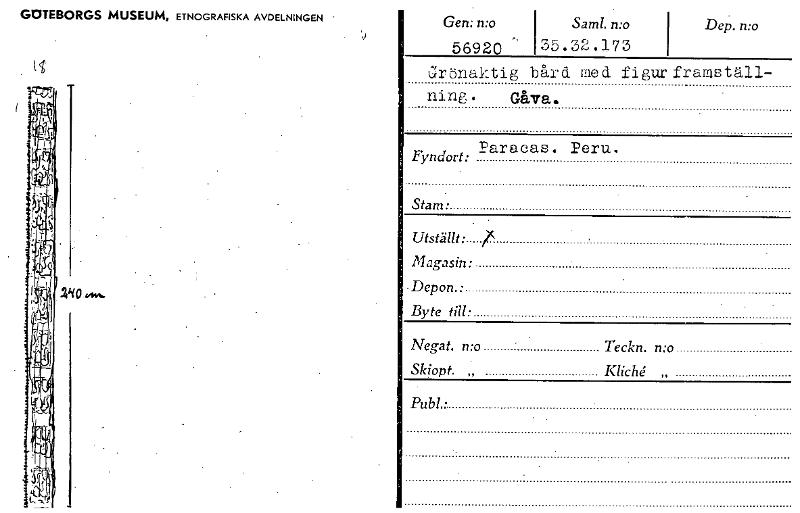 GÖTEBORGS MUSEUM, ETNOGRAFISKA AVDELNINGEN
18
240 cm
Gen: n:o
56920
Saml. n:o
35.32.173
Dep. n:o
Grönaktig bård med figurframställ-
ning. Gåva.
Fyndort: Paracas. Peru.
Stam:
Utställt: X
Magasin:
Depon.:
Byte till:
Negat. n:o Teckn. n:o
Skiopt. „ Kliché „
Publ.: